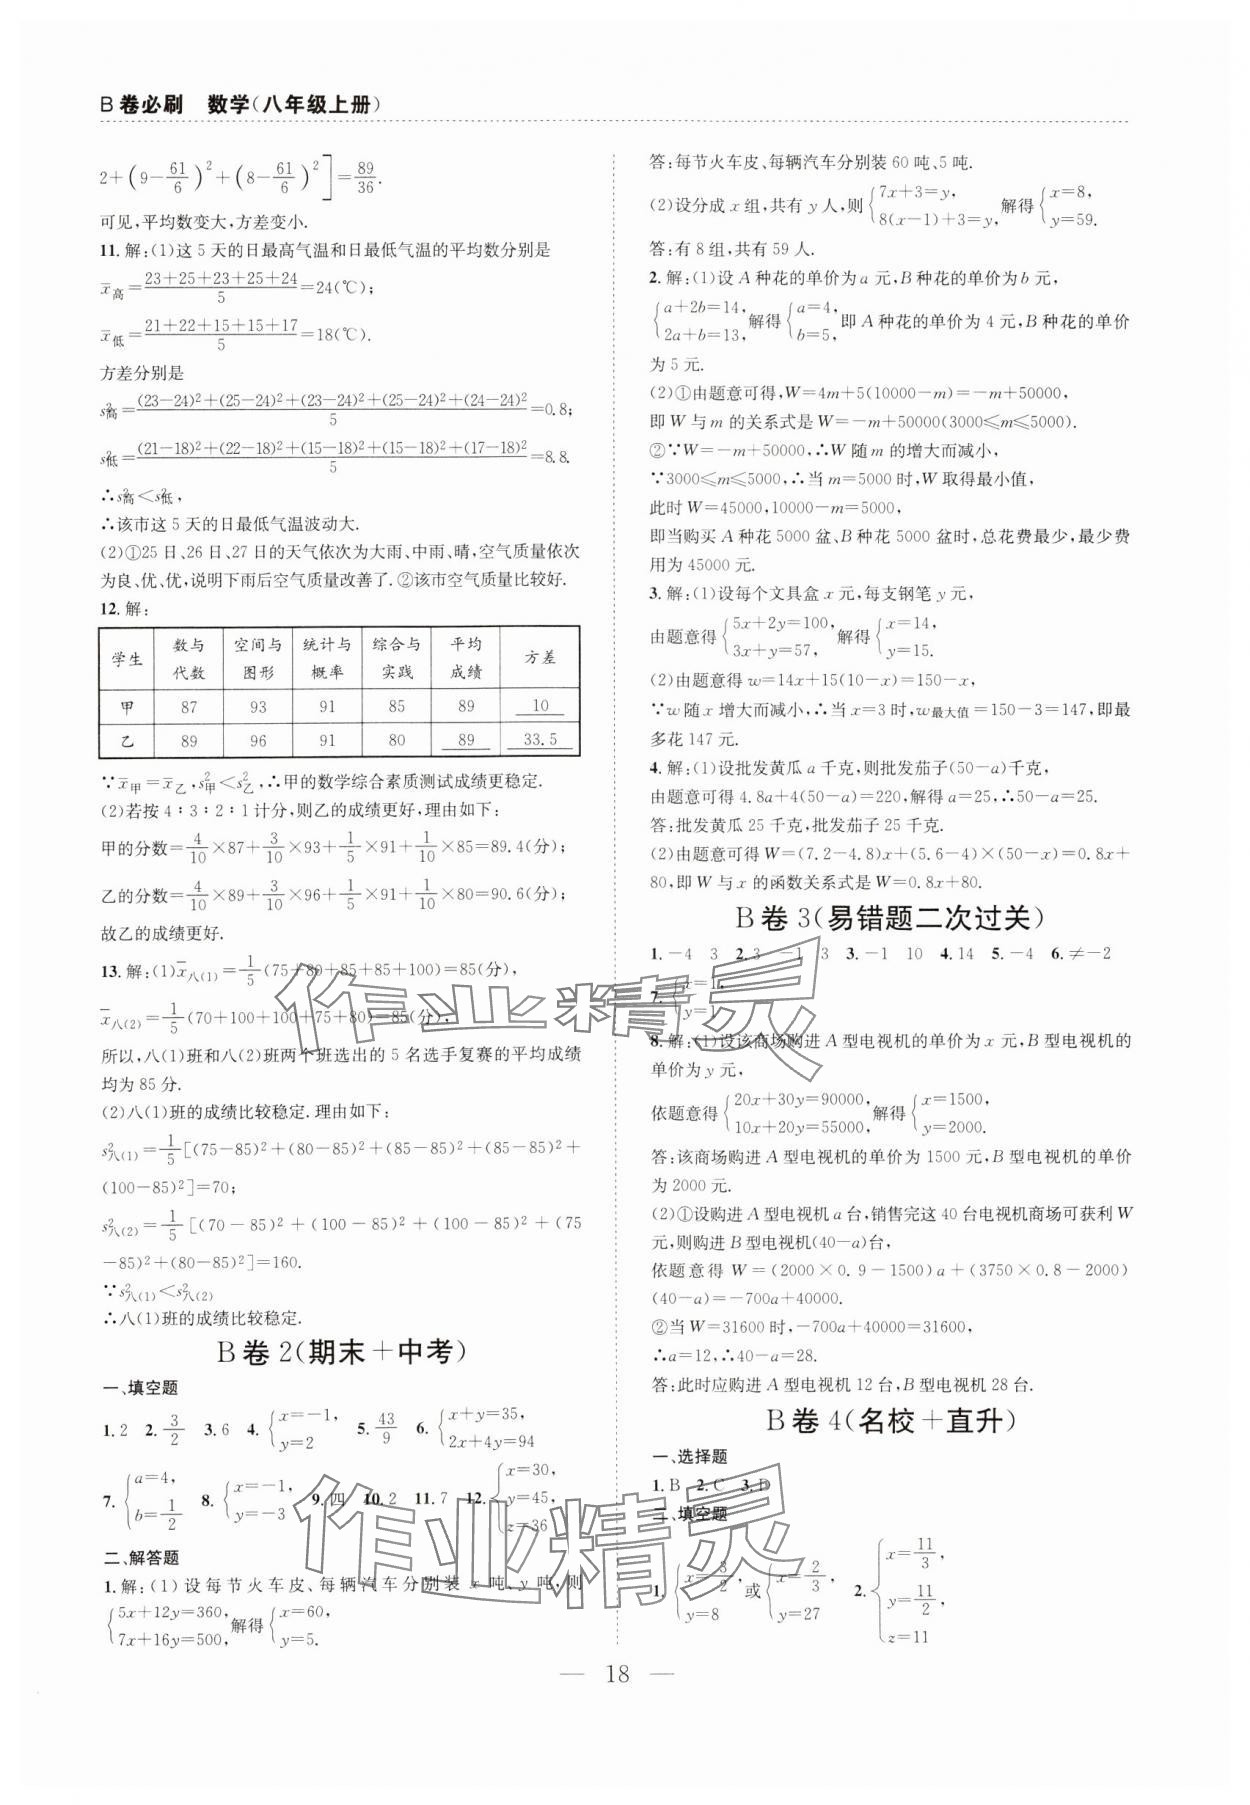 B卷必刷 数学(八年级上册)
2+(9-61/6)²+(8-61/6)²]=89/36.
可见,平均数变大,方差变小.
11.解:(1)这5天的日最高气温和日最低气温的平均数分别是
x̄高=(23+25+23+25+24)/5=24(℃);
x̄低=(21+22+15+15+17)/5=18(℃).
方差分别是
s²高=[(23-24)²+(25-24)²+(23-24)²+(25-24)²+(24-24)²]/5=0.8;
s²低=[(21-18)²+(22-18)²+(15-18)²+(15-18)²+(17-18)²]/5=8.8.
∴s²高<s²低,
∴该市这5天的日最低气温波动大.
(2)①25日、26日、27日的天气依次为大雨、中雨、晴,空气质量依次
为良、优、优,说明下雨后空气质量改善了.②该市空气质量比较好.
12.解:
学生 数与代数 空间与图形 统计与概率 综合与实践 平均成绩 方差
甲 87 93 91 85 89 10
乙 89 96 91 80 89 33.5
∵x̄甲=x̄乙,s²甲<s²乙,∴甲的数学综合素质测试成绩更稳定.
(2)若按4∶3∶2∶1计分,则乙的成绩更好,理由如下:
甲的分数=4/10×87+3/10×93+1/5×91+1/10×85=89.4(分);
乙的分数=4/10×89+3/10×96+1/5×91+1/10×80=90.6(分),
故乙的成绩更好.
13.解:(1)x̄八(1)=1/5(75+80+85+85+100)=85(分),
x̄八(2)=1/5(70+100+100+75+80)=85(分),
所以,八(1)班和八(2)班两个班选出的5名选手复赛的平均成绩
均为85分.
(2)八(1)班的成绩比较稳定.理由如下:
s²八(1)=1/5[(75-85)²+(80-85)²+(85-85)²+(85-85)²+
(100-85)²]=70;
s²八(2)=1/5[(70-85)²+(100-85)²+(100-85)²+(75
-85)²+(80-85)²]=160.
∵s²八(1)<s²八(2)
∴八(1)班的成绩比较稳定.
B卷2(期末+中考)
一、填空题
1.2 2.3/2 3.6 4.{x=-1, y=2 5.43/9 6.{x+y=35, 2x+4y=94
7.{a=4, b=1/2 8.{x=-1, y=-3 9.四 10.2 11.7 12.{x=30, y=45, z=36
二、解答题
1.解:(1)设每节火车皮、每辆汽车分别装x吨、y吨,则
{5x+12y=360, 7x+16y=500, 解得{x=60, y=5.
答:每节火车皮、每辆汽车分别装60吨、5吨.
(2)设分成x组,共有y人,则{7x+3=y, 8(x-1)+3=y, 解得{x=8, y=59.
答:有8组,共有59人.
2.解:(1)设A种花的单价为a元,B种花的单价为b元,
{a+2b=14, 2a+b=13, 解得{a=4, b=5, 即A种花的单价为4元,B种花的单价
为5元.
(2)①由题意可得,W=4m+5(10000-m)=-m+50000,
即W与m的关系式是W=-m+50000(3000≤m≤5000).
②∵W=-m+50000,∴W随m的增大而减小,
∵3000≤m≤5000,∴当m=5000时,W取得最小值,
此时W=45000,10000-m=5000,
即当购买A种花5000盆、B种花5000盆时,总花费最少,最少费
用为45000元.
3.解:(1)设每个文具盒x元,每支钢笔y元,
由题意得{5x+2y=100, 3x+y=57, 解得{x=14, y=15.
(2)由题意得w=14x+15(10-x)=150-x,
∵w随x增大而减小,∴当x=3时,w最大值=150-3=147,即最
多花147元.
4.解:(1)设批发黄瓜a千克,则批发茄子(50-a)千克,
由题意得4.8a+4(50-a)=220,解得a=25,∴50-a=25.
答:批发黄瓜25千克,批发茄子25千克.
(2)由题意可得W=(7.2-4.8)x+(5.6-4)×(50-x)=0.8x+
80,即W与x的函数关系式是W=0.8x+80.
B卷3(易错题二次过关)
1.-4 3 2.3 -1 3 3.-1 10 4.14 5.-4 6.≠-2
7.{x=1, y=1
8.解:(1)设该商场购进A型电视机的单价为x元,B型电视机的
单价为y元,
依题意得{20x+30y=90000, 10x+20y=55000, 解得{x=1500, y=2000.
答:该商场购进A型电视机的单价为1500元,B型电视机的单价
为2000元.
(2)①设购进A型电视机a台,销售完这40台电视机商场可获利W
元,则购进B型电视机(40-a)台,
依题意得W=(2000×0.9-1500)a+(3750×0.8-2000)
(40-a)=-700a+40000.
②当W=31600时,-700a+40000=31600,
∴a=12,∴40-a=28.
答:此时应购进A型电视机12台,B型电视机28台.
B卷4(名校+直升)
一、选择题
1.B 2.C 3.D
二、填空题
1.{x=3/2, y=8 或{x=2/3, y=27 2.{x=11/3, y=11/2, z=11
18
作业精灵
作业精灵